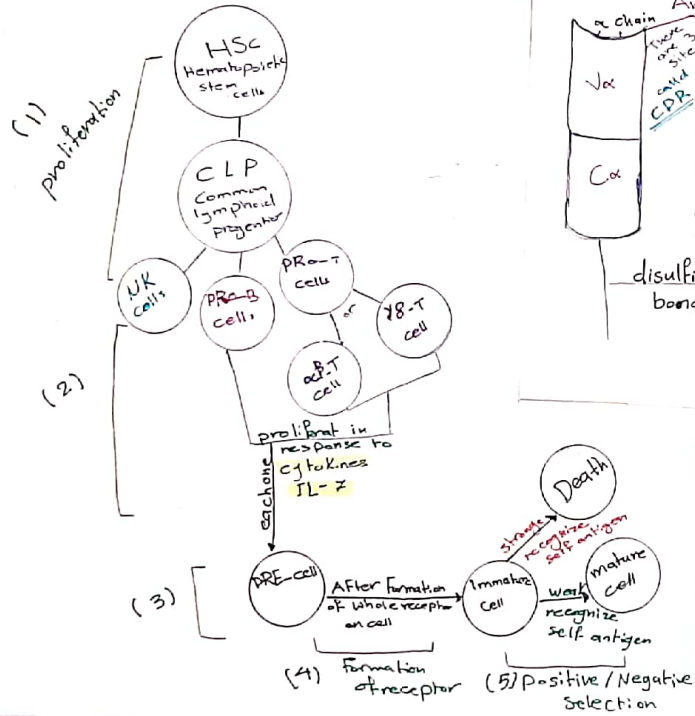 HSC
Hematopoietic
stem
cells
(1)
proliferation
CLP
Common
lymphoid
progenitor
NK
cells
PRO-B
cells
PRO-T
cells
or
γδ-T
cell
αβ-T
cell
(2)
proliferat in
response to
cytokines
IL-7
eachone
(3)
PRE-cell
After Formation
of whole receptor
on cell
Immature
cell
strong
recognize
self antigen
Death
weak
recognize
self antigen
mature
cell
(4) Formation
of receptor
(5) Positive/Negative
Selection
α chain
There
are 3
site
called
CDR
Vα
Cα